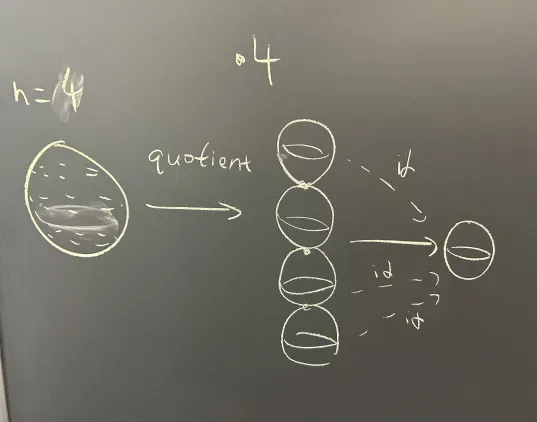 .4
n=4
quotient
id
id
id